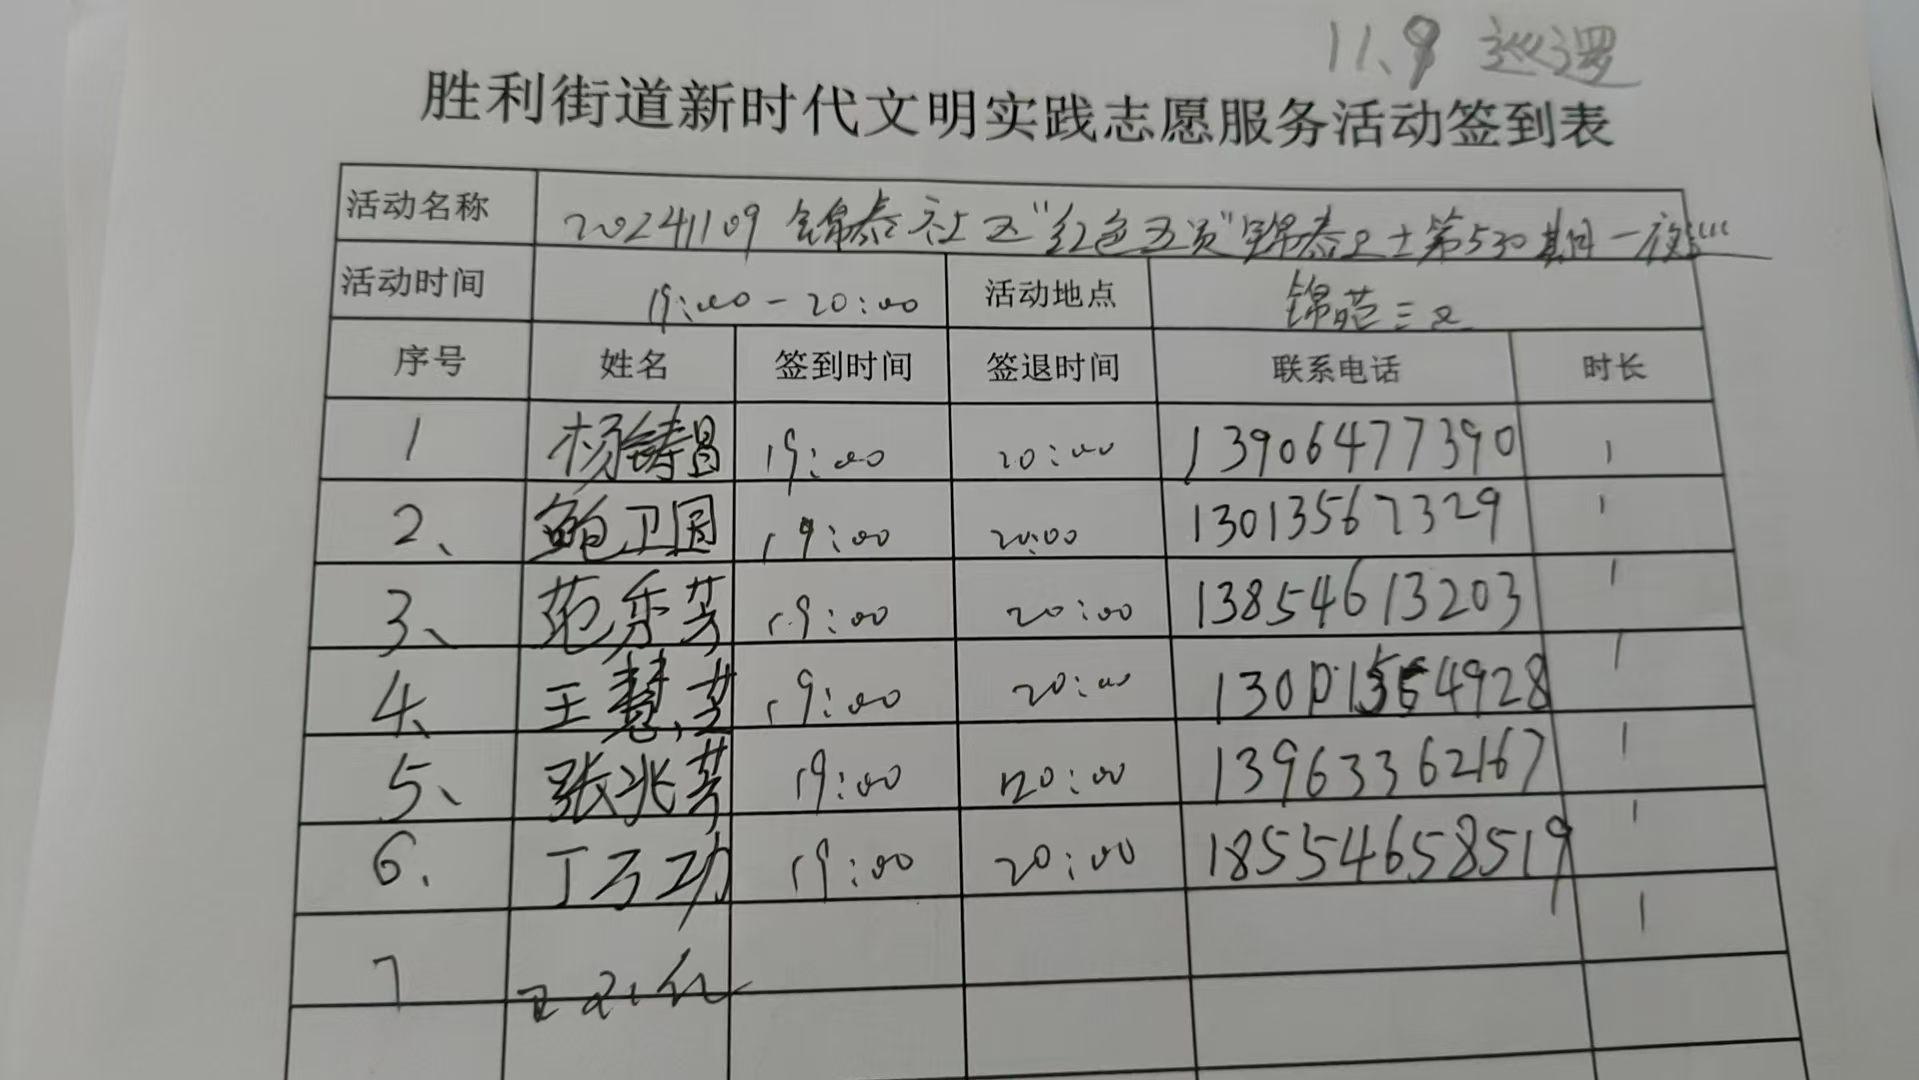 11.9 巡逻
胜利街道新时代文明实践志愿服务活动签到表
活动名称 20241109 锦泰社区"红色五员"锦泰卫士第530期一夜巡
活动时间 19:00-20:00 活动地点 锦苑三区
序号 姓名 签到时间 签退时间 联系电话 时长
1 杨铸昌 19:00 20:00 13906477390 1
2、 鲍卫国 19:00 20:00 13013567329 1
3、 范乐芳 19:00 20:00 13854613203 1
4、 王慧芝 19:00 20:00 4928 1
5、 张兆芳 19:00 20:00 13963362167 1
6. 丁万功 19:00 20:00 18554658519 1
7 1